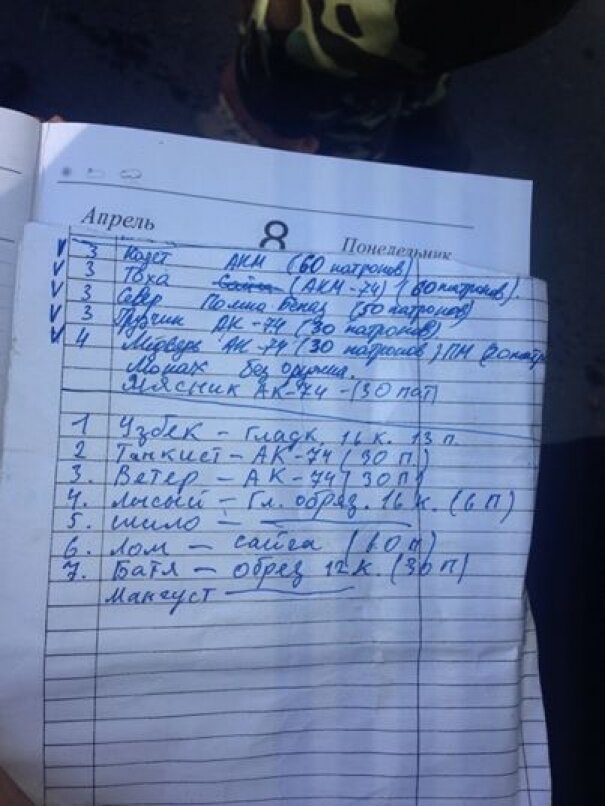 Апрель 8 Понедельник
3 Кост АКМ (60 патронов)
3 Тоха Сайга (АКМ-74) (60 патронов).
3 Север (30 патронов)
3 Грузчик АК-74 (30 патронов)
4 Медведь АК-74 (30 патронов) ПМ
Монах без оружия.
Мясник АК-74 - (30 пат)
1 Узбек - Гладк. 16 к. 13 п.
2 Танкист - АК-74 (30 п.)
3. Ветер - АК-74 (30 п)
4. Лысый - Гл. обрез. 16 к. (6 п)
5. Шило -
6. Лом - сайга (10 п)
7. Батя - обрез 12 к. (30 п)
Мангуст